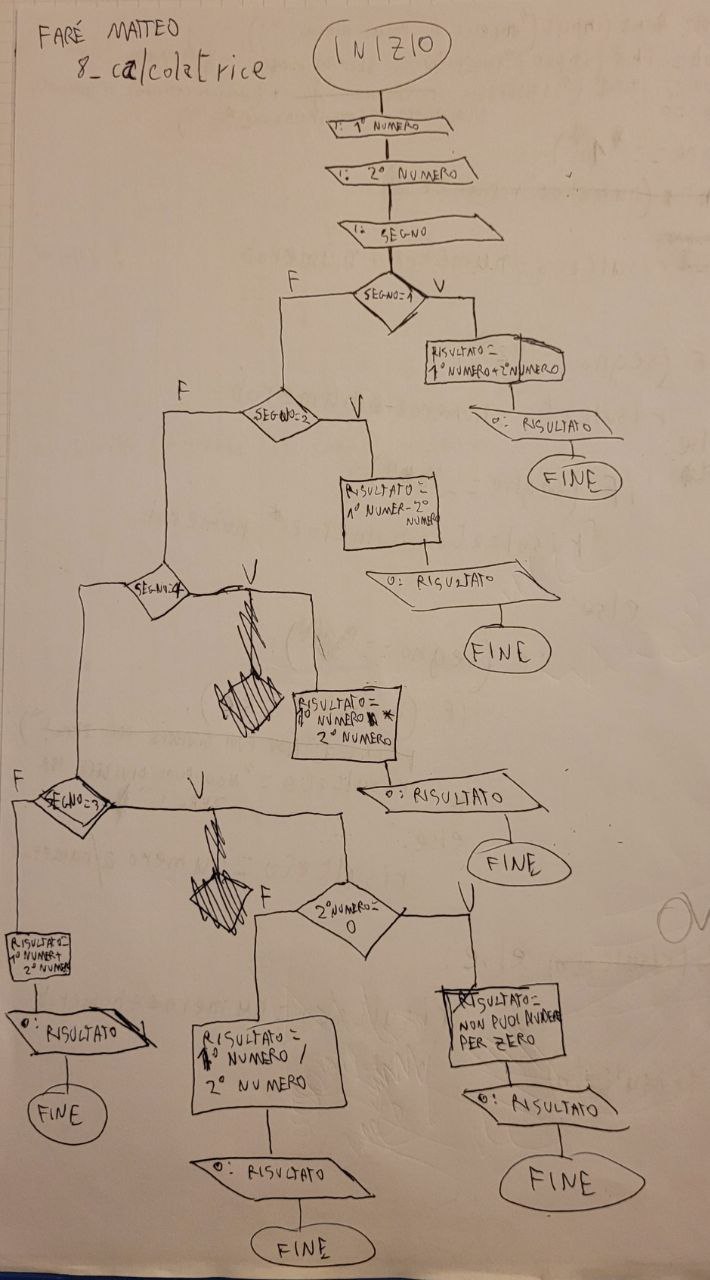 FARÉ MATTEO
8_calcolatrice
INIZIO
I: 1° NUMERO
I: 2° NUMERO
I: SEGNO
SEGNO=1
F
V
RISULTATO=
1° NUMERO+2° NUMERO
O: RISULTATO
FINE
SEGNO=2
F
V
RISULTATO=
1° NUMER-2°
NUMERO
O: RISULTATO
FINE
SEGNO=4
V
RISULTATO=
1° NUMERO *
2° NUMERO
O: RISULTATO
FINE
SEGNO=3
F
V
2° NUMERO=
0
F
V
RISULTATO=
1° NUMER+
2° NUMER
O: RISULTATO
FINE
RISULTATO=
1° NUMERO /
2° NUMERO
O: RISULTATO
FINE
RISULTATO=
NON PUOI DIVIDERE
PER ZERO
O: RISULTATO
FINE